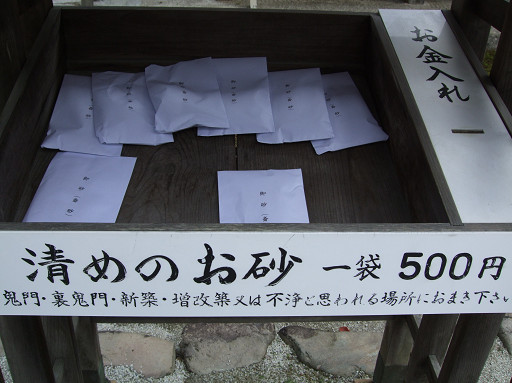 お金入れ
清めのお砂 一袋 500円
鬼門・裏鬼門・新築・増改築又は不浄と思われる場所におまき下さい